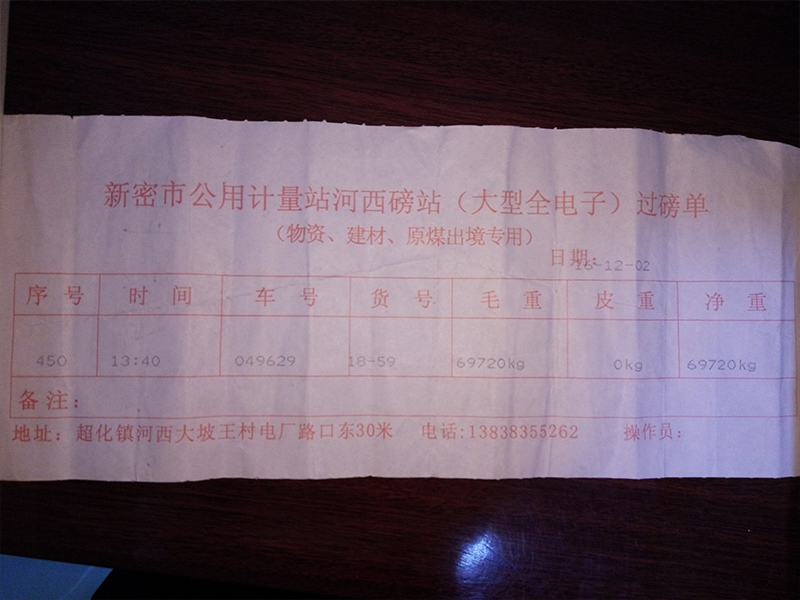 新密市公用计量站河西磅站（大型全电子）过磅单
（物资、建材、原煤出境专用）
日期：16-12-02
序号 时间 车号 货号 毛重 皮重 净重
450 13:40 049629 18-59 69720kg 0kg 69720kg
备注：
地址：超化镇河西大坡王村电厂路口东30米 电话:13838355262 操作员：